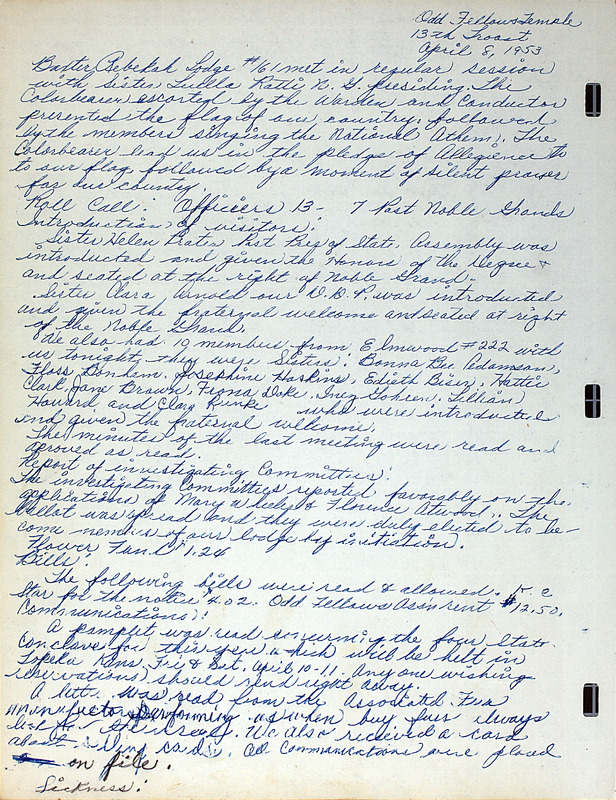 Odd Fellows Temple
13th & Troost
April 8, 1953
Baxter Rebekah Lodge #161 met in regular session
with Sister Luella Ratti N. G. presiding. The
Colorbearer escorted by the Warden and Conductor
presented the flag of our country, followed
by the members singing the National Athem. The
Colorbearer lead us in the pledge of Allegience to
to our flag, followed by a moment of silent prayer
for our country.
Roll Call: Officers 13 - 7 Past Noble Grands
Introduction of visitors:
Sister Helen Prater Past Pres of State Assembly was
introduced and given the Honors of the Degree &
and seated at the right of Noble Grand.
Sister Clara Arnold our D.D.P. was introduced
and given the fraternal welcome and seated at right
of the Noble Grand.
We also had 19 members from Elmwood #222 with
us tonight, they were Sisters: Bonna Bee Adamson,
Floss Josephine Hoskins, Edieth Hattie
Clark, Jane Brown, Fiona Lillian
Howard, and Clara who were introduced
and given the paternal welcome.
The minutes of the last meeting were read and
aproved as read.
Report of investigating Committies:
The investigating Committies reported favorably on the
applications of Mary & Florence Atwood. The
Ballot was spread and they were duly elected to be-
come members of our lodge by initiation.
Flower Fund 1.26
Bills:
The following bills were read & allowed. K. C
Star for the notice 4.02. Odd Fellows Assn rent $12.50.
Communications:
A pamplet was read concerning the four State
Conclave for this year which will be helt in
Topeka Kans, Fri & Sat. April 10-11. Any one wishing
reservations should send right away.
A letter was read from the Associated Fur
as when buy fur always
look for We also recieved a card
about All Communications were placed
on file.
Sickness: